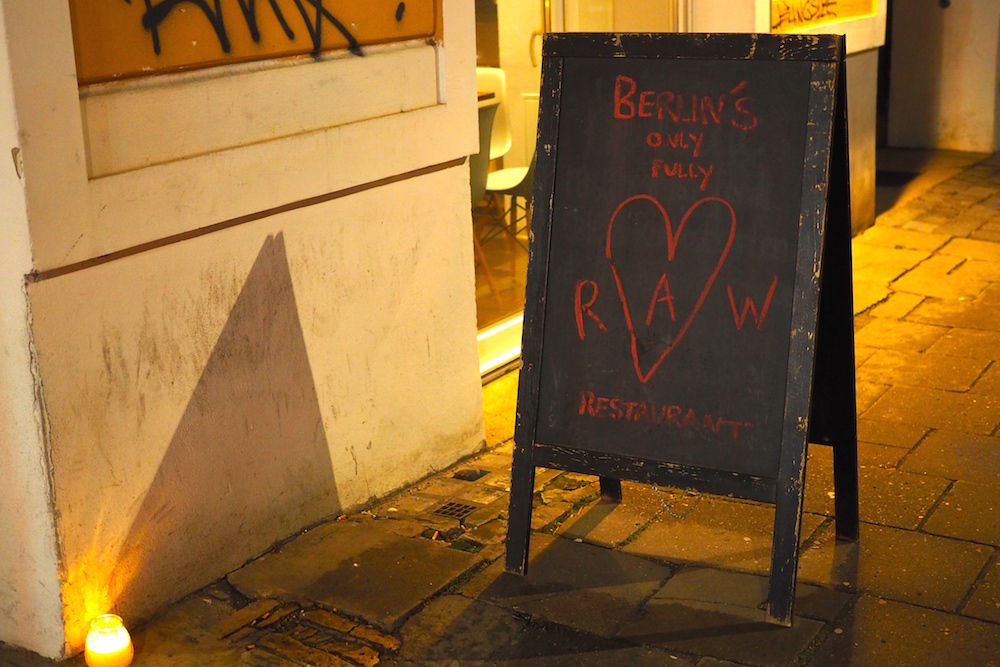 BERLIN'S
ONLY
FULLY
RAW
RESTAURANT